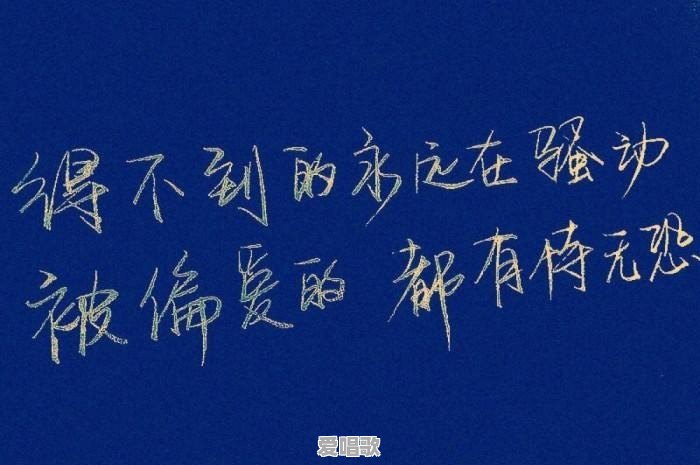 得不到的永远在骚动
被偏爱的 都有恃无恐
爱唱歌